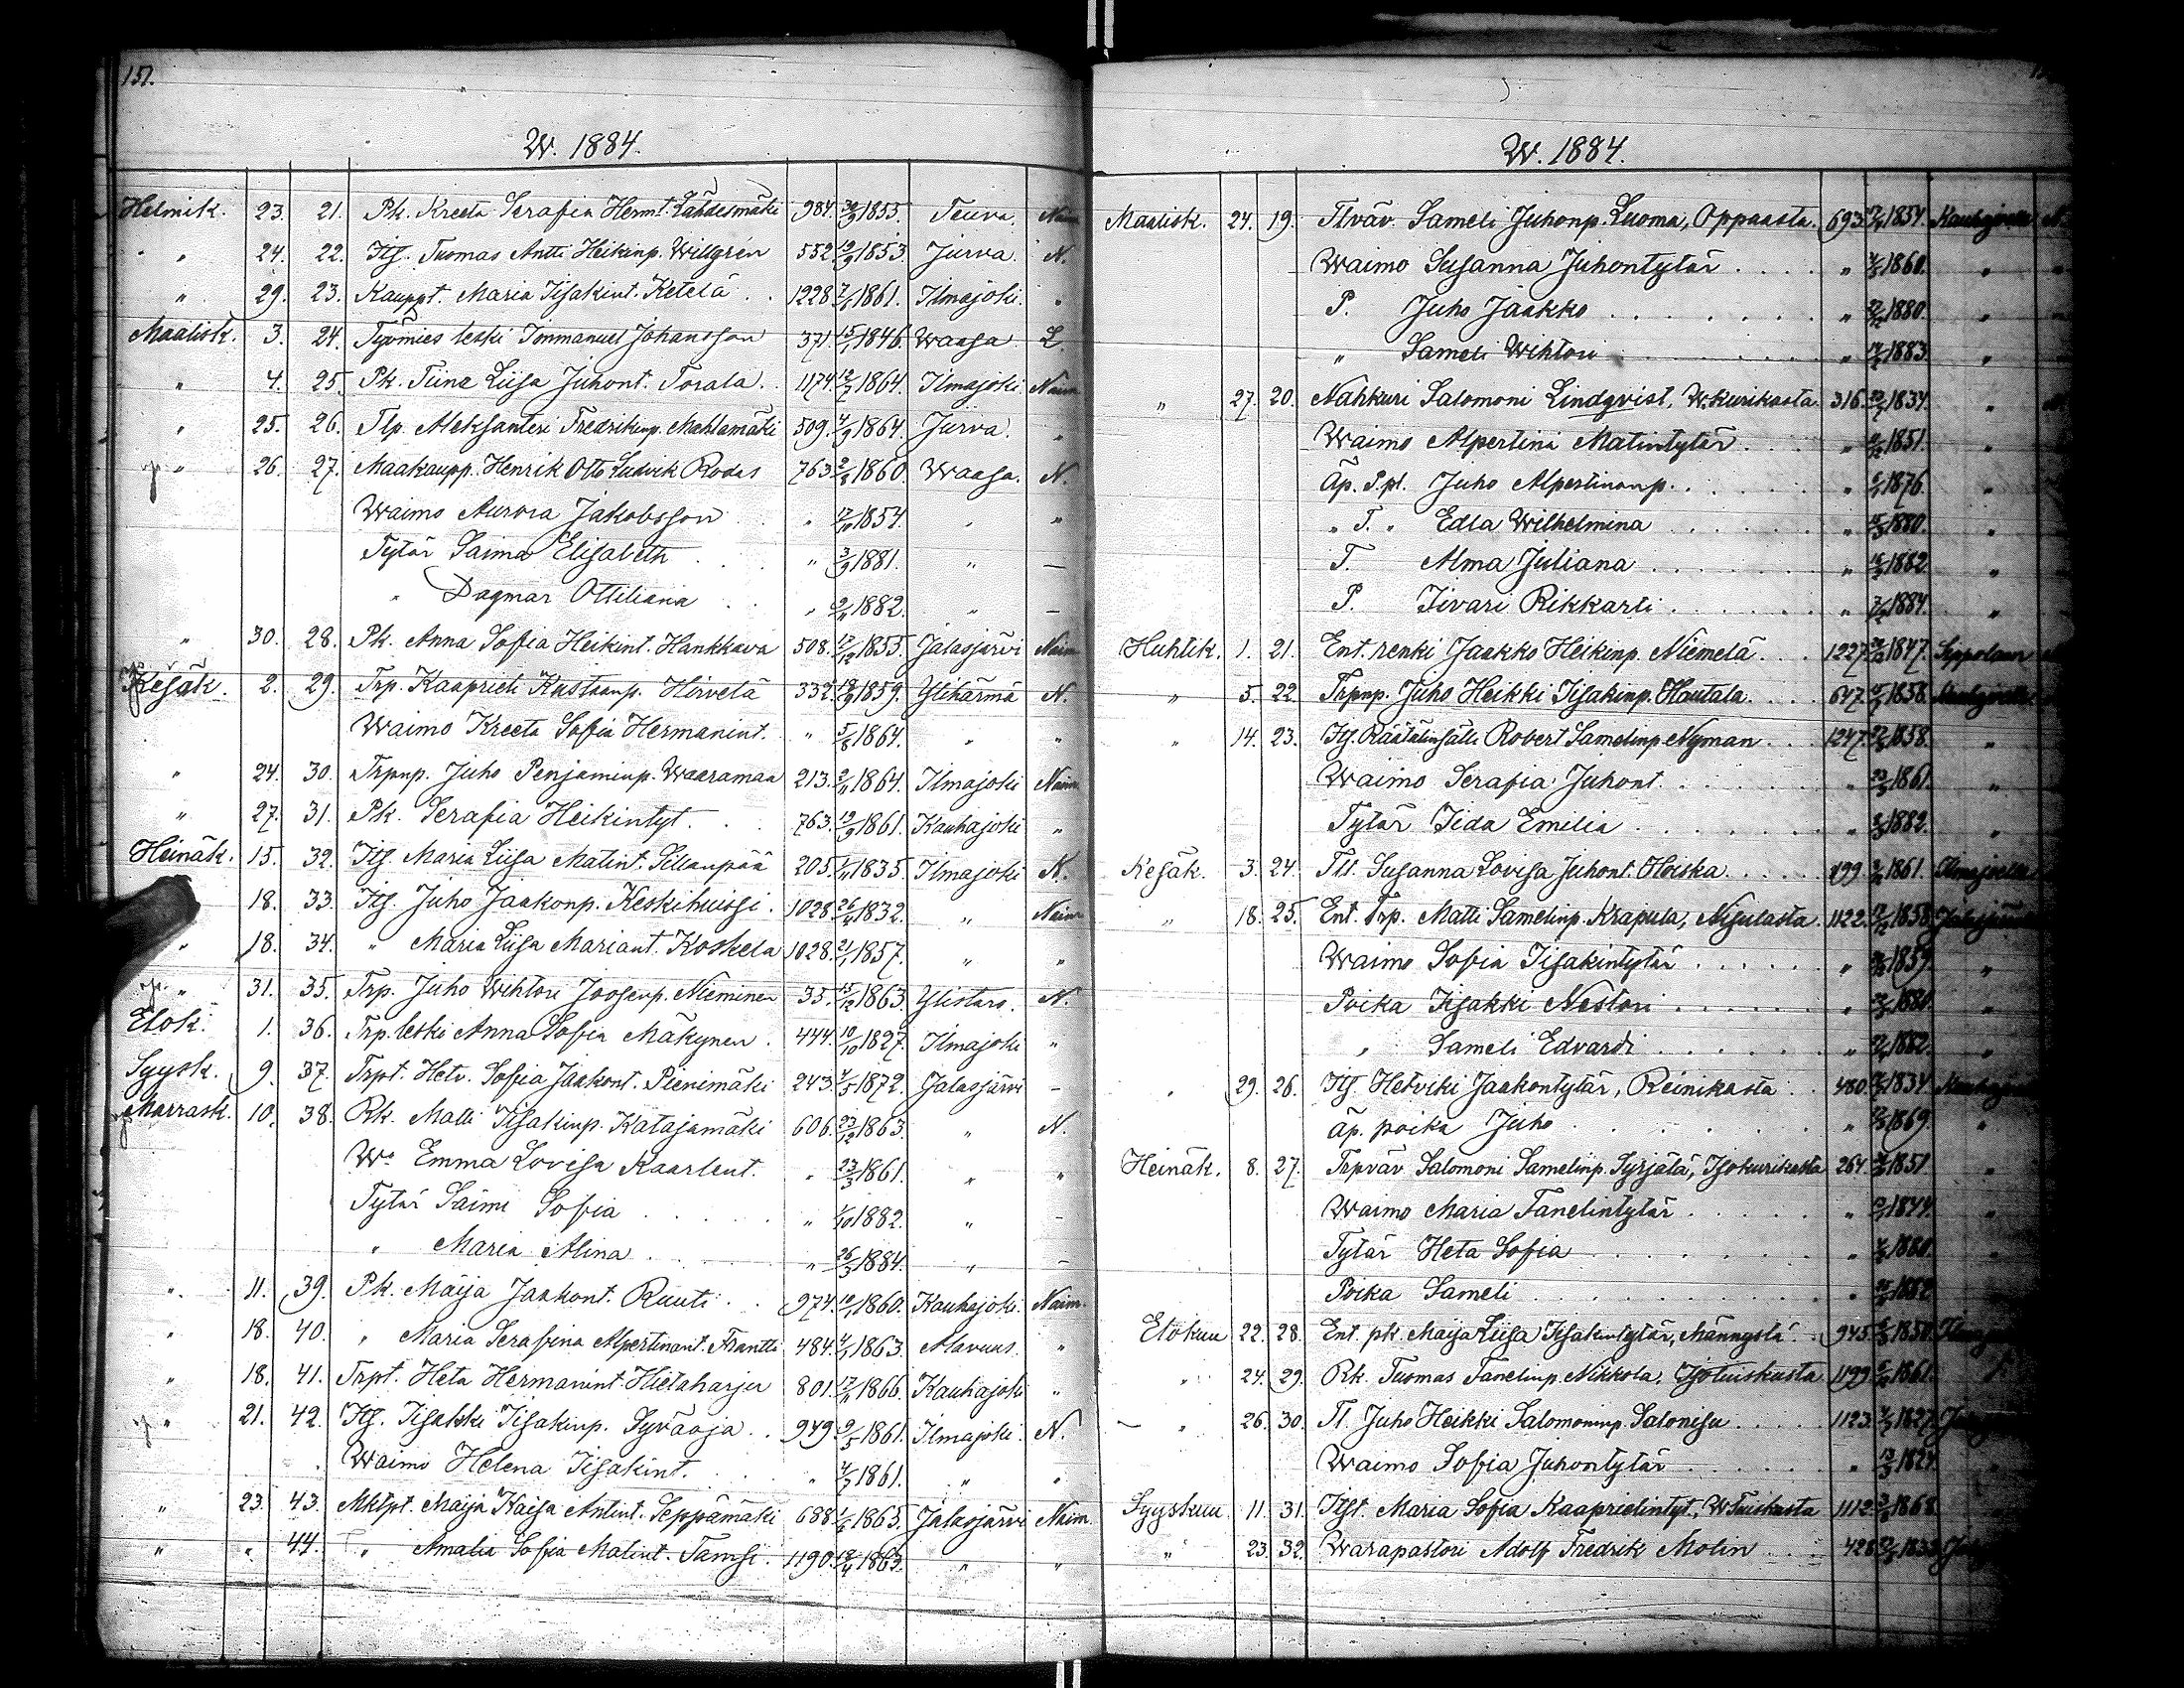 151.
W. 1884.
Helmik. 23. 21. Pk. Kreeta Serafia Hermt. Lähdesmäki 984. 1855. Teuva. Naim
" 24. 22. Itg. Tuomas Antti Heikinp. Willgrén 552. 1853. Jurva. N.
" 29. 23. Kauppt. Maria Iisakint. Ketelä 1228. 1861. Ilmajoki. "
Maalisk. 3. 24. Työmies leski Immanuel Johansson 371. 15/1 1846. Waasa L.
" 4. 25. Pk. Tiina Liisa Juhont. Torala. 1174. 12/7 1864. Ilmajoki Naim
" 25. 26. Tlp. Aleksanteri Fredrikinp. Mahlamäki 509. 4/9 1864. Jurva. "
" 26. 27. Maakaupp. Henrik Otto Ludvik Rodas 763. 1860. Waasa. N.
Waimo Aurora Jakobsson " 1854. " "
Tytär Saima Elisabeth " 3/9 1881. " —
" Dagmar Ottiliana " 1882. " —
" 30. 28. Pk. Anna Sofia Heikint. Hankkava 508. 17/12 1855. Jalasjärvi Naim
Kesäk. 2. 29. Trp. Kaaprieli Kustaanp. Hirvelä 332. 1859. Ylihärmä N.
Waimo Kreeta Sofia Hermanint. " 5/8 1864. " "
" 24. 30. Trpnp. Juho Penjaminp. Waaramaa 213. 2/11 1864. Ilmajoki Naim
" 27. 31. Pk. Serafia Heikintyt. 763. 19/9 1861. Kauhajoki "
Heinäk. 15. 32. Itg. Maria Liisa Matint. Sillanpää 205. 1/11 1835. Ilmajoki N.
18. 33. Itg. Juho Jaakonp. Keskihuissi. 1028. 1832. " Naim
" 18. 34. " Maria Liisa Mariant. Koskela 1028. 21/1 1857. " "
" 31. 35. Trp. Juho Wihtori Joosenp. Nieminen 35. 15/12 1863. Ylistaro. N.
Elok. 1. 36. Trp. leski Anna Sofia Mäkynen. 444. 10/10 1827. Ilmajoki "
Syysk. 9. 37. Trpt. Hetv. Sofia Jaakont. Pienimäki 243. 4/5 1872. Jalasjärvi –
Marrask. 10. 38. Rk. Matti Iisakinp. Katajamäki 606. 23/12 1863. " N.
W:o Emma Lovisa Kaarlent. " 23/3 1861. " "
Tytär Saimi Sofia " 1/10 1882. " –
" Maria Alina " 26/3 1884. " –
" 11. 39. Pk. Maija Jaakont. Ruuti 974. 19/1 1860. Kauhajoki. Naim.
" 18. 40. " Maria Serafina Alpertinant. Frantti 484. 4/1 1863. Alavuus. "
" 18. 41. Trpt. Heta Hermanint. Hietaharju 801. 1866. Kauhajoki "
" 21. 42. Itg. Iisakki Iisakinp. Syväoja 949. 9/5 1861. Ilmajoki. N.
Waimo Helena Iisakint. " 4/7 1861. " "
" 23. 43. Mktpt. Maija Kaisa Antint. Seppämäki 688. 1865. Jalasjärvi Naim.
" " 44. " Amalia Sofia Matint. Tamsi. 1190. 12/4 1863. " "
W. 1884.
Maalisk. 24. 19. Tlväv. Sameli Juhonp. Luoma, Oppaasta. 693. 1854. Kauhajoelle
Waimo Susanna Juhontytär " 1860. "
P. Juho Jaakko " 1880. "
" Sameli Wihtori " 1883. "
" 27. 20. Nahkuri Salomoni Lindqvist, W.kurikasta 316. 1834. "
Waimo Alpertina Matintytär " 1851. "
Äp. P.pl. Juho Alpertinanp. " 1876. "
" T. " Edla Wilhelmina " 1880. "
T. Alma Juliana " 1882. "
P. Iivari Rikkarti " 1884. "
Huhtik. 1. 21. Ent. renki Jaakko Heikinp. Niemelä 1227. 1847.
" 5. 22. Trpnp. Juho Heikki Iisakinp. Hautala 647. 1858.
" 14. 23. Itg. Räätälinsälli Robert Samelinp. Nyman 1247. 1858. "
Waimo Serafia Juhont. " 1861. "
Tytär Iida Emilia " 1882. "
Kesäk. 3. 24. Tlt. Susanna Lovisa Juhont. Hoiska 199. 1861. Ilmajoelle
" 18. 25. Ent. Trp. Matti Samelinp. Krapula, Nisulasta. 1122. 1858.
Waimo Sofia Iisakintytär " 1859. "
Poika Iisakki Nestori " 1880. "
" Sameli Edvardi " 1882. "
" 29. 26. Itg. Hetviki Jaakontytär, Reinikasta 480. 1834.
Äp. poika Juho " 1869. "
Heinäk. 8. 27. Trpväv. Salomoni Samelinp. Syrjälä, Isokurikasta 264. 1851 "
Waimo Maria Tanelintytär " 1844. "
Tytär Heta Sofia " 1880. "
Poika Sameli " 1882 "
Elokuu 22. 28. Ent. pk. Maija Liisa Iisakintytär, Männystä 945. 1850.
" 24. 29. Rk. Tuomas Tanelinp. Nikkola, Isoluiskusta 1199. 1861.
" 26. 30. Tl. Juho Heikki Salomoninp. Salonisu 1123. 1827.
Waimo Sofia Juhontytär " 1824.
Syyskuu 11. 31. Itgt. Maria Sofia Kaaprielintyt., W.Tuiskusta 1112. 1868.
" 23. 32. Warapastori Adolf Fredrik Molin 428.